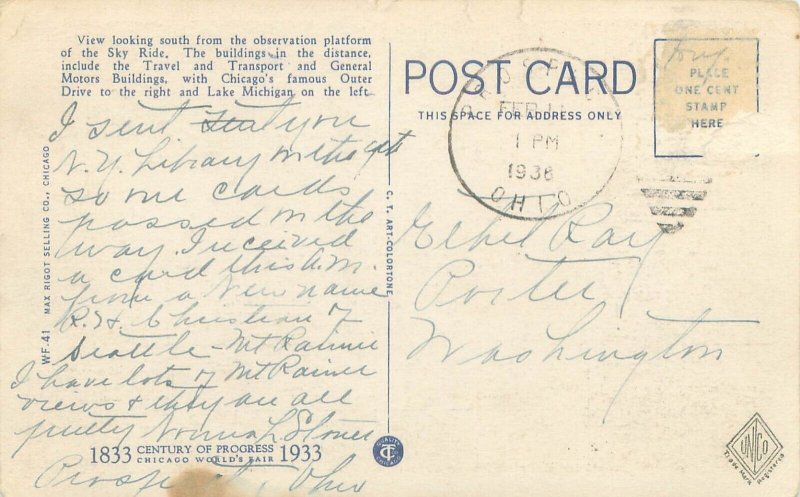 View looking south from the observation platform
of the Sky Ride. The buildings in the distance,
include the Travel and Transport and General
Motors Buildings, with Chicago's famous Outer
Drive to the right and Lake Michigan on the left
I sent you
N.Y. Library on the 9th
so our cards
passed on the
way. I received
a card this A.M.
from a new name
R. H. Christian of
Seattle - Mt Rainie
I have lots of Mt Rainier
views & they are all
pretty Norma L Stoner
Prospect, Ohio
1833 CENTURY OF PROGRESS 1933
CHICAGO WORLD'S FAIR
WF-41 MAX RIGOT SELLING CO., CHICAGO
C. T. ART-COLORTONE
QUALITY
CT
CHICAGO
POST CARD
THIS SPACE FOR ADDRESS ONLY
PROSPECT
FEB 11
1 PM
1936
OHIO
PLACE
ONE CENT
STAMP
HERE
Ethel Ray
Porter
Washington
UNICO
Trade Mark Registered